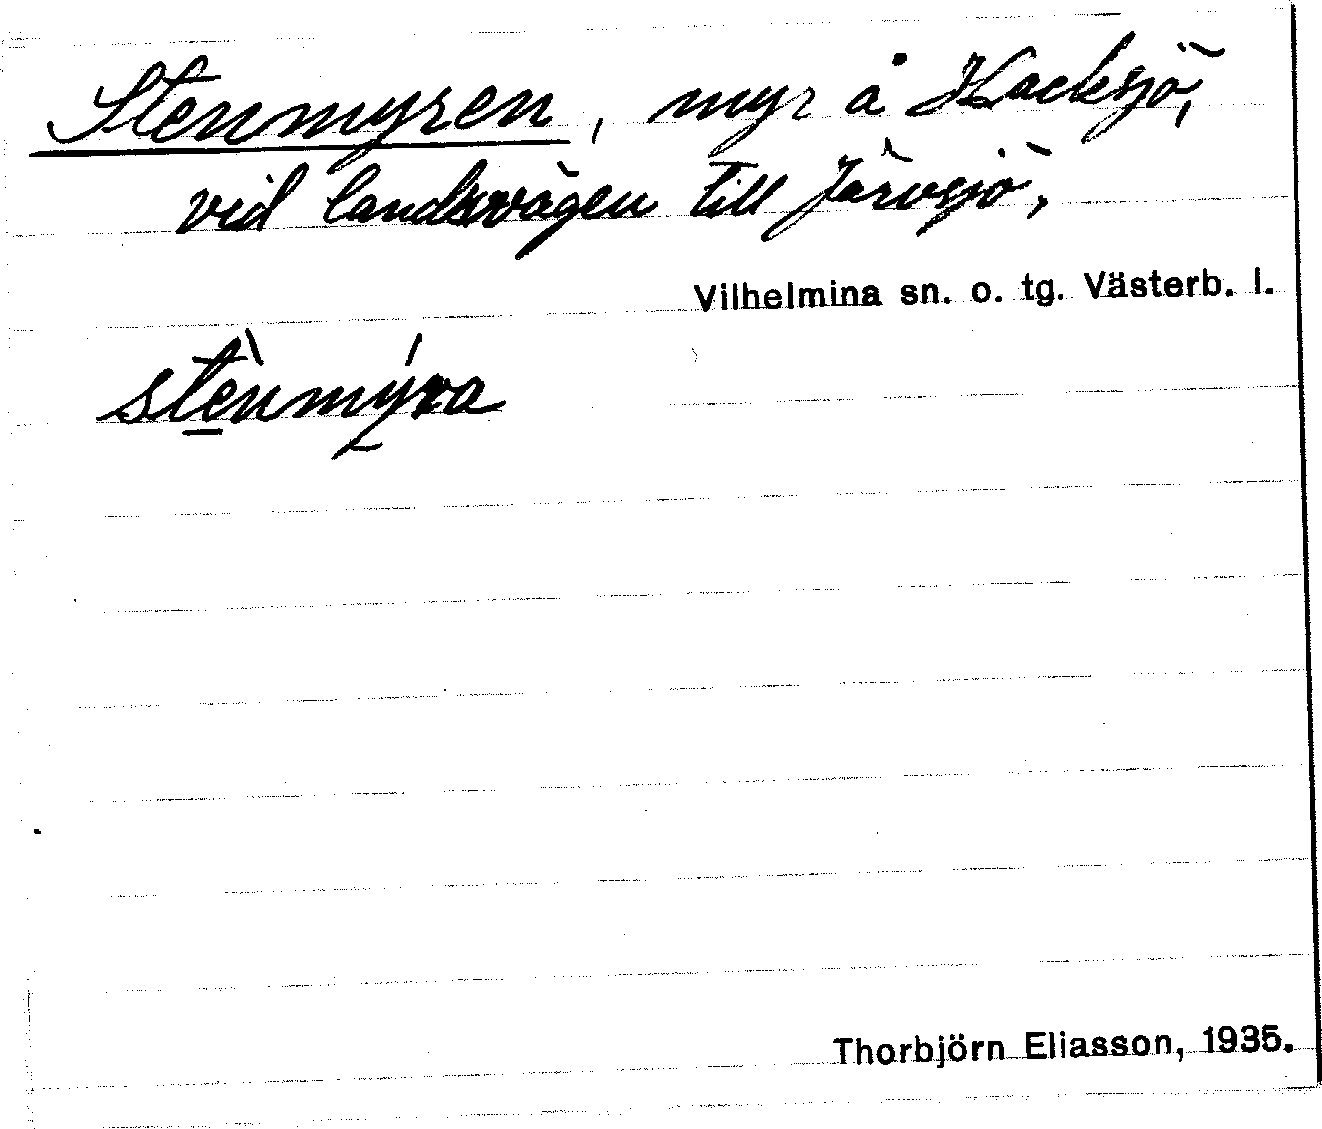 Stenmyren, myr å Hacksjö,
vid landsvägen till Järvsjö,
Vilhelmina sn. o. tg. Västerb. l.
stè̲nmý̲ra
Thorbjörn Eliasson, 1935.